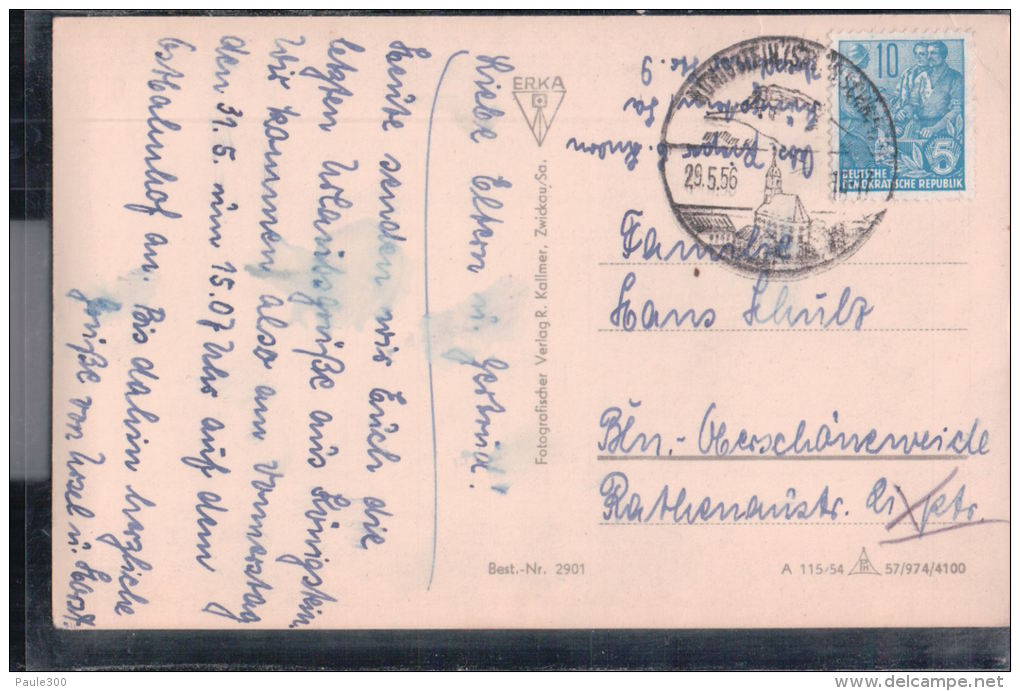 Liebe Eltern u. Gertrud!
Heute senden wir Euch die
letzten Urlaubsgrüße aus Königstein.
Wir kommen also am Donnerstag
den 31.5. um 15.07 Uhr auf dem
Ostbahnhof an. Bis dahin herzliche
Grüße von Ursel u. Horst.
ERKA
Fotografischer Verlag R. Kallmer, Zwickau/Sa.
Best.-Nr. 2901
Abs.
Nr. 9
29.5.56
10
5
DEUTSCHE
DEMOKRATISCHE REPUBLIK
Familie
Hans Schulz
Bln.-Oberschöneweide
Rathenaustr. ptr.
A 115/54 57/974/4100
Paule300
delcampe.net